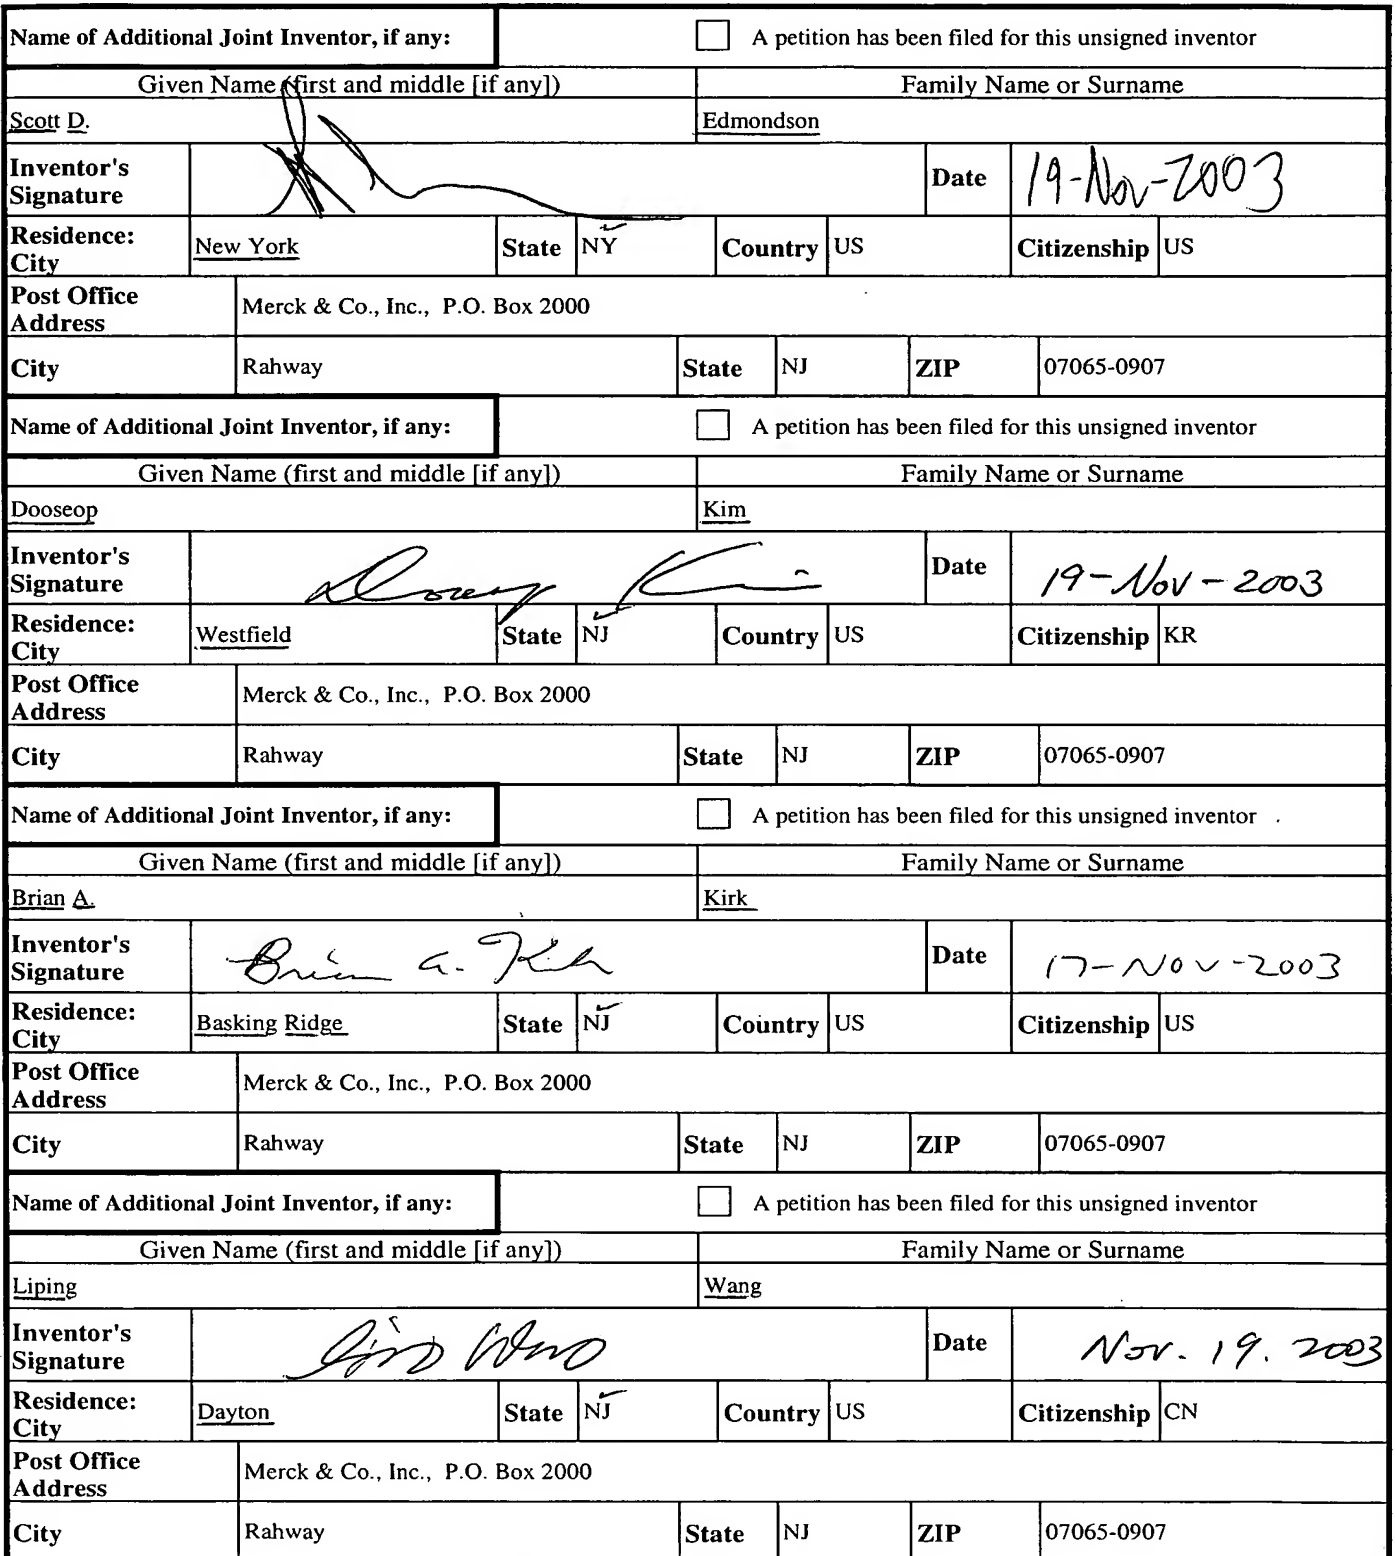 Name of Additional Joint Inventor, if any: A petition has been filed for this unsigned inventor
Given Name (first and middle [if any]) Family Name or Surname
Scott D. Edmondson
Inventor's Signature Date 19-Nov-2003
Residence: City New York State NY Country US Citizenship US
Post Office Address Merck & Co., Inc., P.O. Box 2000
City Rahway State NJ ZIP 07065-0907
Name of Additional Joint Inventor, if any: A petition has been filed for this unsigned inventor
Given Name (first and middle [if any]) Family Name or Surname
Dooseop Kim
Inventor's Signature Date 19-Nov-2003
Residence: City Westfield State NJ Country US Citizenship KR
Post Office Address Merck & Co., Inc., P.O. Box 2000
City Rahway State NJ ZIP 07065-0907
Name of Additional Joint Inventor, if any: A petition has been filed for this unsigned inventor
Given Name (first and middle [if any]) Family Name or Surname
Brian A. Kirk
Inventor's Signature Brian A. Kirk Date 17-Nov-2003
Residence: City Basking Ridge State NJ Country US Citizenship US
Post Office Address Merck & Co., Inc., P.O. Box 2000
City Rahway State NJ ZIP 07065-0907
Name of Additional Joint Inventor, if any: A petition has been filed for this unsigned inventor
Given Name (first and middle [if any]) Family Name or Surname
Liping Wang
Inventor's Signature Date Nov. 19. 2003
Residence: City Dayton State NJ Country US Citizenship CN
Post Office Address Merck & Co., Inc., P.O. Box 2000
City Rahway State NJ ZIP 07065-0907